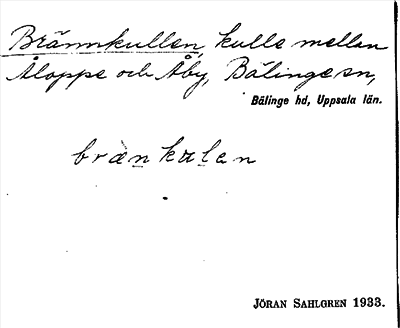 Brännkullen, kulle mellan
Åloppe och Åby, Bälinge sn,
Bälinge hd, Uppsala län.
bräŋkulen
JÖRAN SAHLGREN 1933.